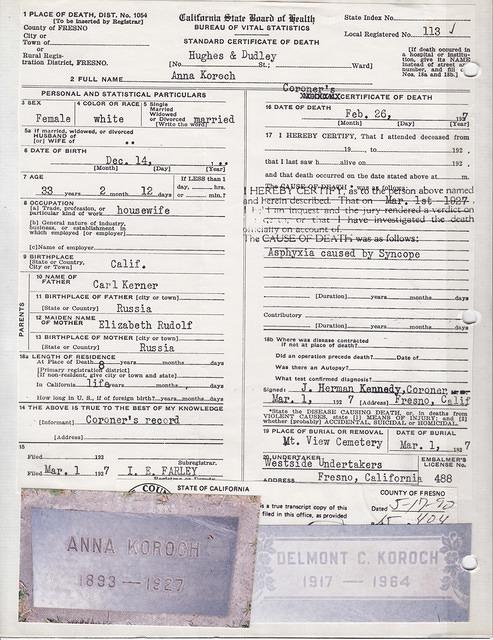 1 PLACE OF DEATH, DIST. No. 1054
[To be inserted by Registrar]
County of FRESNO
City or
Town of
or
Rural Regis-
tration District, FRESNO.
California State Board of Health
BUREAU OF VITAL STATISTICS
STANDARD CERTIFICATE OF DEATH
Hughes & Dudley
[No. St.; Ward]
State Index No.
Local Registered No. 113
[If death occured in
a hospital or institu-
tion, give its NAME
instead of street and
number, and fill out
Nos. 18a and 18b.]
2 FULL NAME Anna Koroch
PERSONAL AND STATISTICAL PARTICULARS
3 SEX Female
4 COLOR OR RACE white
5 Single
Married
Widowed
or Divorced married
[Write the word]
5a If married, widowed, or divorced
HUSBAND of
[or] WIFE of
6 DATE OF BIRTH
Dec. 14,
[Month] [Day] [Year]
7 AGE
33 years 2 months 12 days
If LESS than 1
day, hrs.
or min.?
8 OCCUPATION
(a) Trade, profession, or
particular kind of work housewife
(b) General nature of industry,
business, or establishment in
which employed [or employer]
[c]Name of employer
9 BIRTHPLACE
[State or Country,
City or Town] Calif.
PARENTS
10 NAME OF
FATHER Carl Kerner
11 BIRTHPLACE OF FATHER [city or town]
[State or Country] Russia
12 MAIDEN NAME
OF MOTHER Elizabeth Rudolf
13 BIRTHPLACE OF MOTHER [city or town]
[State or Country] Russia
18a LENGTH OF RESIDENCE
At Place of Death 8 years months days
[Primary registration district]
[If non-resident, give city or town and state]
In California life years months days
How long in U. S., if of foreign birth? years months days
14 THE ABOVE IS TRUE TO THE BEST OF MY KNOWLEDGE
[Informant] Coroner's record
[Address]
15
Filed 192
Subregistrar.
Filed Mar. 1 1927 I. E. FARLEY
Coroner's
CERTIFICATE OF DEATH
16 DATE OF DEATH
Feb. 26, 7
[Month] [Day] [Yr]
17 I HEREBY CERTIFY, That I attended deceased from
19 , to 192
that I last saw h alive on 192
and that death occurred on the date stated above at m.
The CAUSE OF DEATH was as follows:
I HEREBY CERTIFY, as to the person above named
and herein described. That on Mar. 1st 1927
inquest and the jury rendered a verdict on
or that I have investigated the death
officially on account of.
The CAUSE OF DEATH was as follows:
Asphyxia caused by Syncope
[Duration] years months days
Contributory
[Duration] years months days
18b Where was disease contracted
if not at place of death?
Did an operation precede death? Date of
Was there an Autopsy?
What test confirmed diagnosis?
Signed: J. Herman Kennedy, Coroner
Mar. 1, 1927 [Address] Fresno, Calif
*State the DISEASE CAUSING DEATH, or, in deaths from
VIOLENT CAUSES, state [1] MEANS OF INJURY; and [2]
whether [probably] ACCIDENTAL, SUICIDAL or HOMICIDAL.
19 PLACE OF BURIAL OR REMOVAL
Mt. View Cemetery
DATE OF BURIAL
Mar. 1, 1927
20 UNDERTAKER
Westside Undertakers
ADDRESS Fresno, California
EMBALMER'S
LICENSE No.
488
COU
STATE OF CALIFORNIA
COUNTY OF FRESNO
is a true transcript copy of this
filed in this office, as provided
Dated 5-17-90
ANNA KOROCH
1893 — 1927
DELMONT C. KOROCH
1917 — 1964